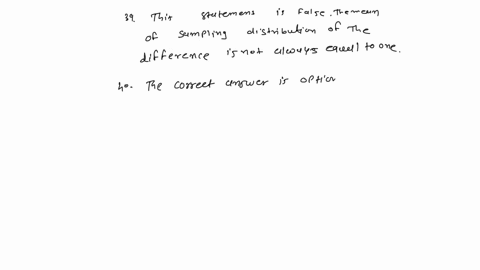 39. This statement is false. The mean
of sampling distribution of The
difference is not always equal to one.
40. The correct answer is option